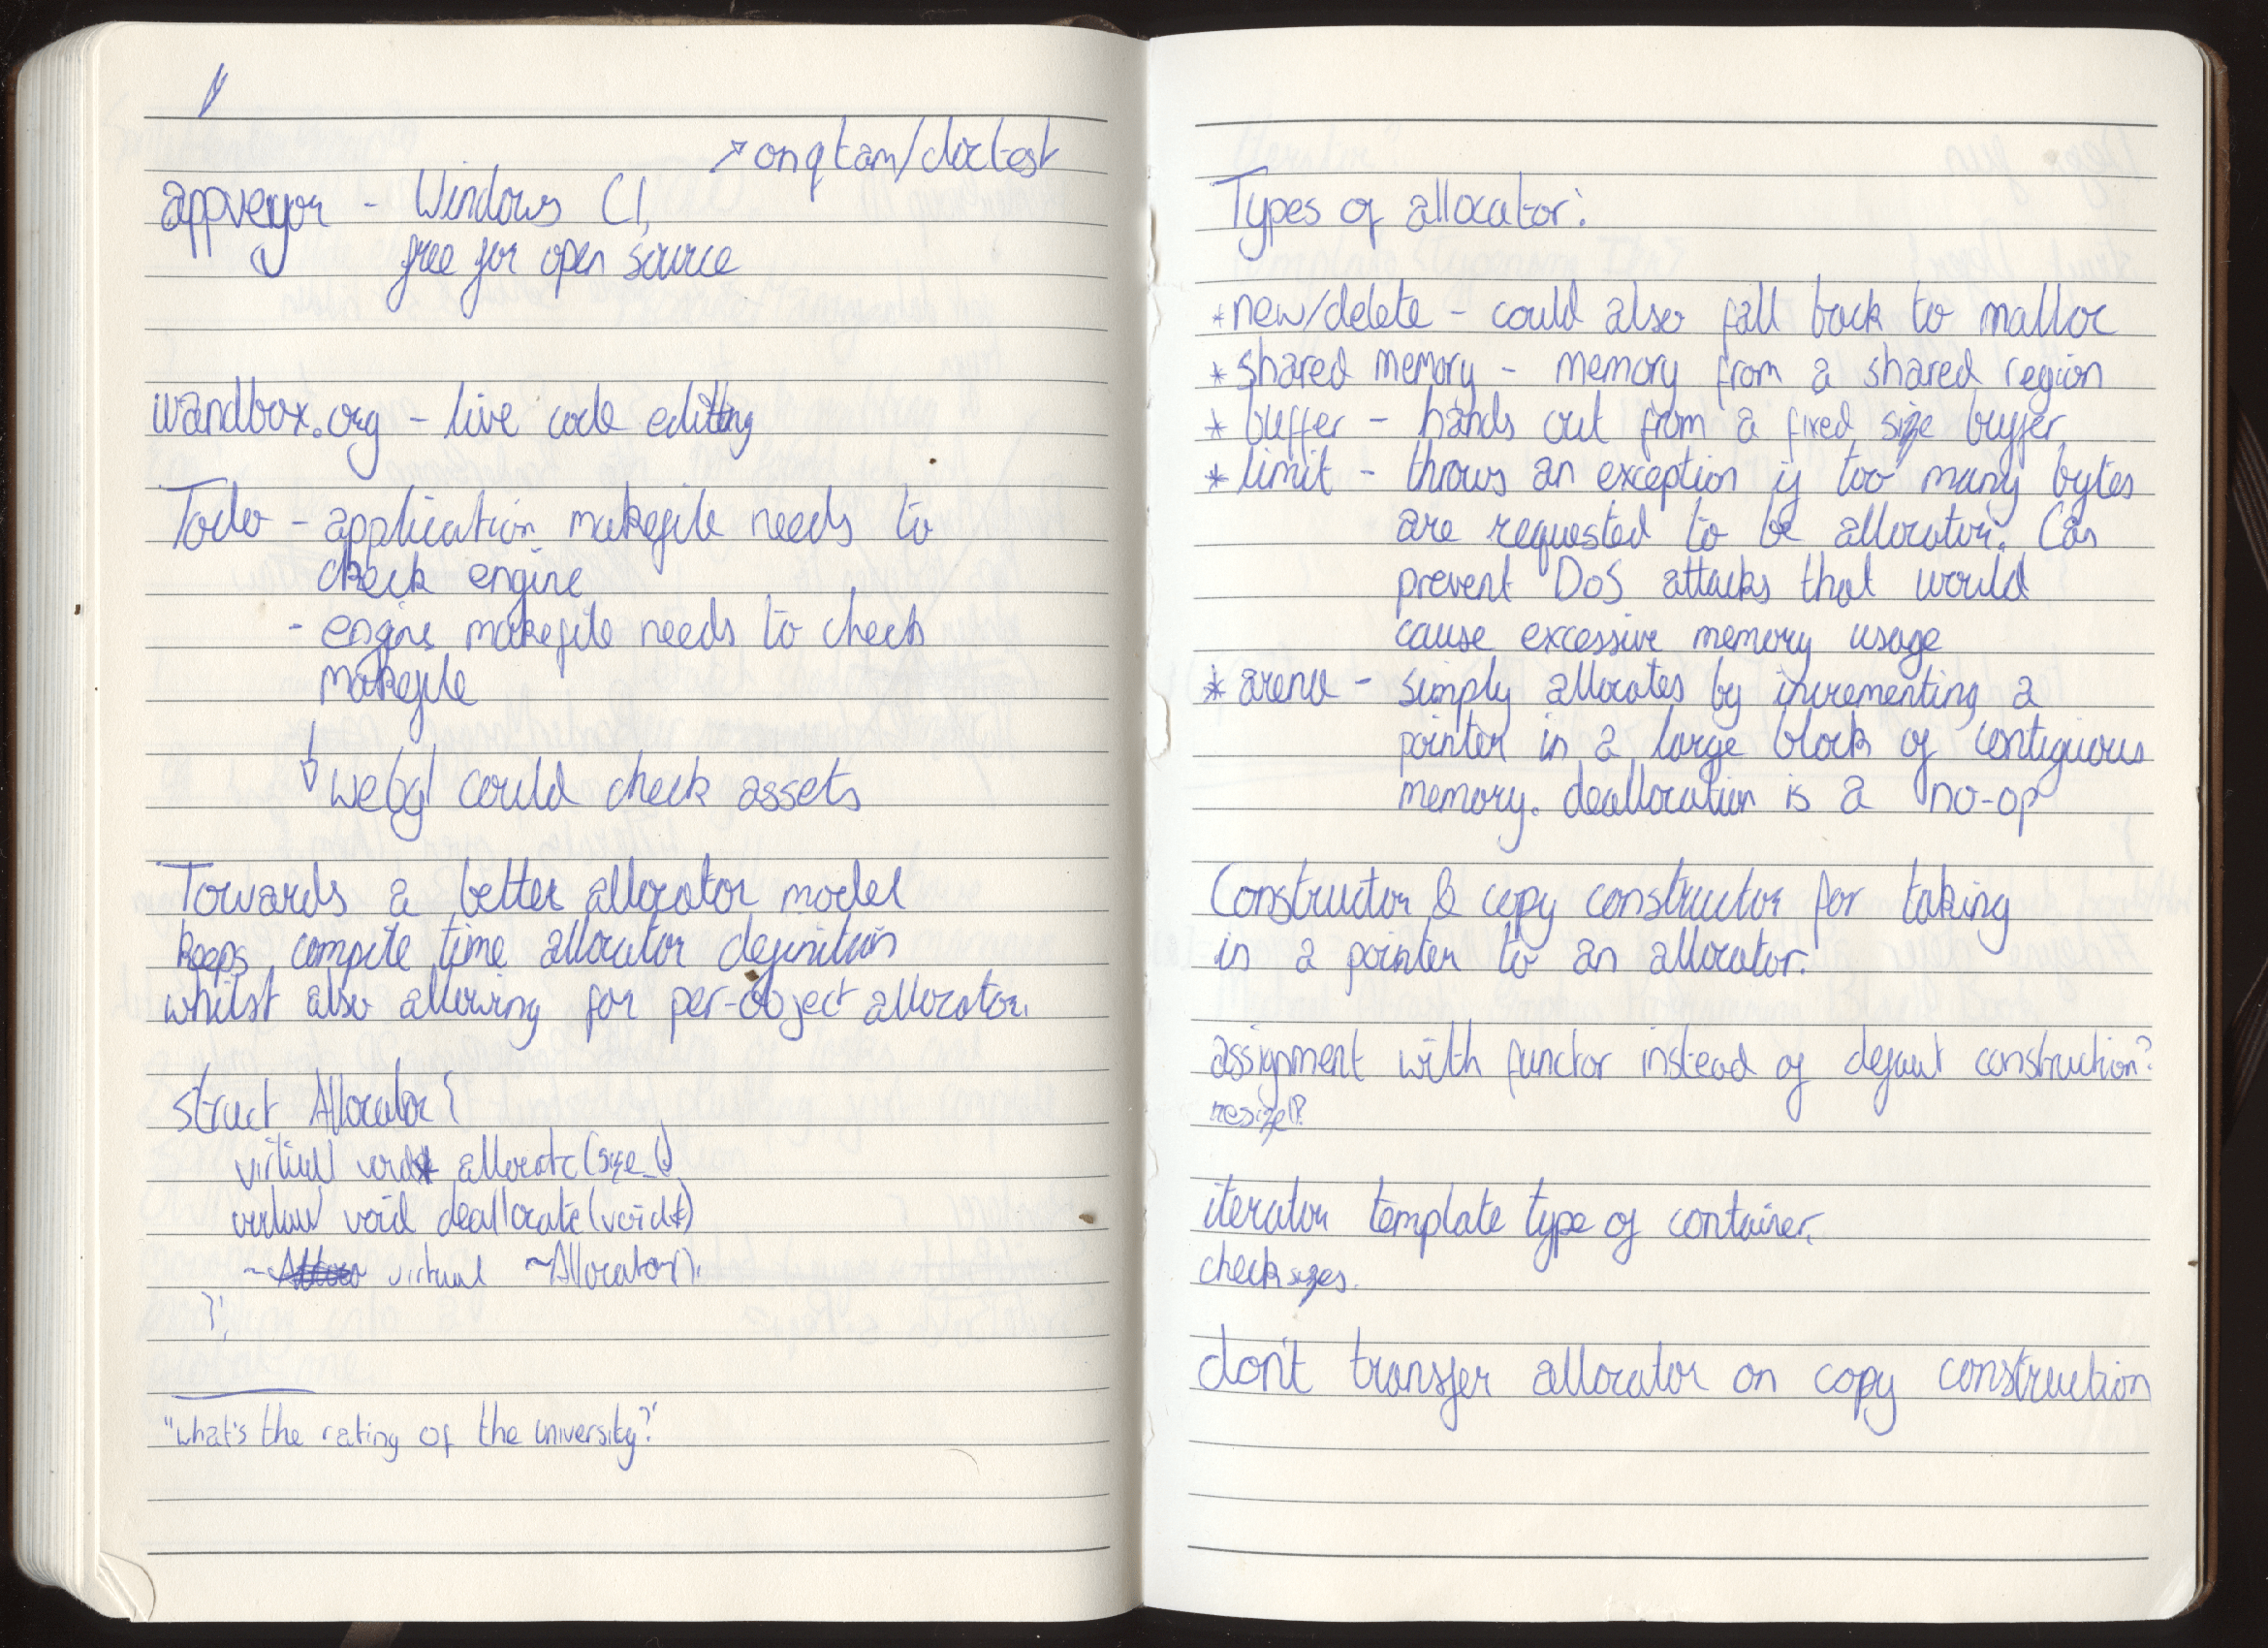 ↗ onqtam/doctest
appveyor - Windows CI,
free for open source
wandbox.org - live code editing
Todo - application makefile needs to
check engine
- engine makefile needs to check
makefile
↓ webgl could check assets
Towards a better allocator model
keeps compile time allocator definition
whilst also allowing for per-object allocator.
struct Allocator {
virtual void* allocate(size_t)
virtual void deallocate(void*)
~ virtual ~Allocator();
};
"what's the rating of the university?"
Types of allocator:
* new/delete - could also fall back to malloc
* shared memory - memory from a shared region
* buffer - hands out from a fixed size buffer
* limit - throws an exception if too many bytes
are requested to be allocator. Can
prevent DoS attacks that would
cause excessive memory usage
* arena - simply allocates by incrementing a
pointer in a large block of contiguous
memory. deallocation is a no-op
Constructor & copy constructor for taking
in a pointer to an allocator.
assignment with functor instead of defaut construction?
resize()?
iterator template type of container.
check sizes.
don't transfer allocator on copy construction